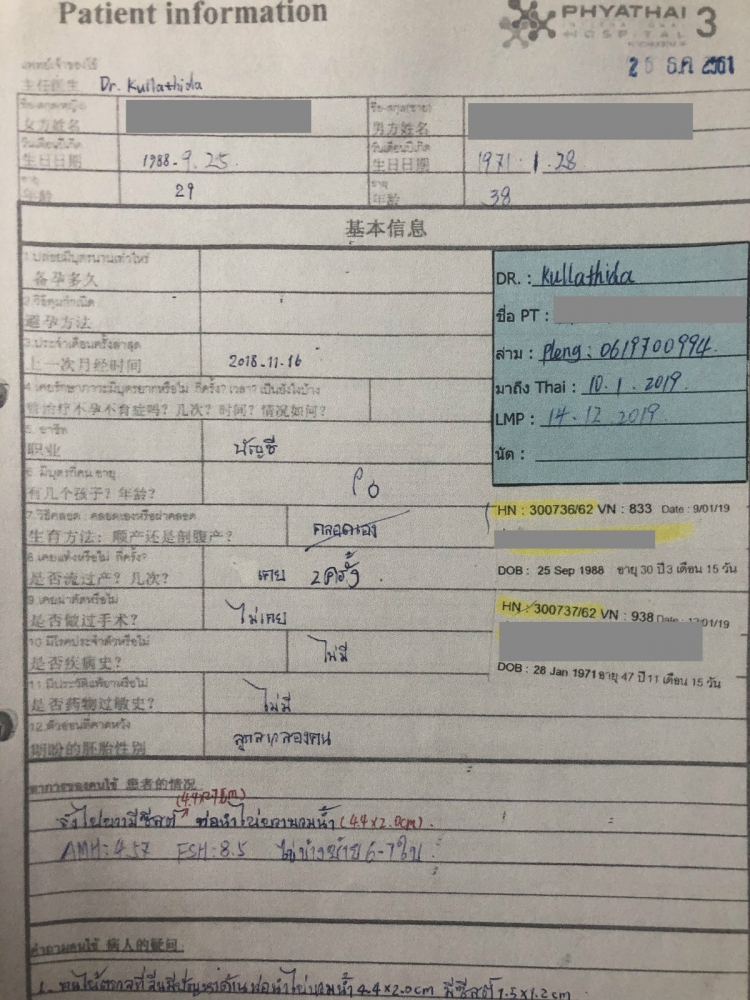 Patient information
PHYATHAI 3
INTERNATIONAL
HOSPITAL
26 ธ.ค 2561
แพทย์เจ้าของไข้
主任医生 Dr. Kullathida
ชื่อ-สกุล(หญิง) ชื่อ-สกุล(ชาย)
女方姓名 男方姓名
วันเดือนปีเกิด วันเดือนปีเกิด
生日日期 1988-9.25. 生日日期 1971.1.28
อายุ อายุ
年龄 29 年龄 38
基本信息
1.ปล่อยมีบุตรนานเท่าไหร่
备孕多久
2.วิธีคุมกำเนิด
避孕方法
3.ประจำเดือนครั้งล่าสุด
上一次月经时间 2018-11-16
4.เคยรักษาภาวะมีบุตรยากหรือไม่ กี่ครั้ง? เวลา? เป็นยังไงบ้าง
曾治疗不孕不育症吗? 几次? 时间? 情况如何?
5. อาชีพ
职业 บัญชี
6. มีบุตรกี่คน อายุ
有几个孩子? 年龄? P0
7.วิธีคลอด : คลอดเองหรือผ่าคลอด
生育方法: 顺产还是剖腹产? คลอดเอง
8.เคยแท้งหรือไม่ กี่ครั้ง?
是否流过产? 几次? เคย 2ครั้ง
9.เคยผ่าตัดหรือไม่
是否做过手术? ไม่เคย
10.มีโรคประจำตัวหรือไม่
是否疾病史? ไม่มี
11.มีประวัติแพ้ยาหรือไม่
是否药物过敏史? ไม่มี
12.ตัวอ่อนที่คาดหวัง
期盼的胚胎性别
DR. : Kullathida
ชื่อ PT :
ล่าม : Pleng : 0619700994
มาถึง Thai : 10.1.2019
LMP : 14-12.2019
นัด :
HN : 300736/62 VN : 833 Date : 9/01/19
DOB : 25 Sep 1988 อายุ 30 ปี 3 เดือน 15 วัน
HN : 300737/62 VN : 938 Date :
DOB : 28 Jan 1971 อายุ 47 ปี 11 เดือน 15 วัน
อาการของคนไข้ 患者的情况
รังไข่ขวามีซีสต์ ท่อนำไข่ขวาบวมน้ำ (4.4×2.0cm).
AMH: 4.57 FSH: 8.5 ไข่ข้างซ้าย 6-7ใบ
คำถามคนไข้ 病人的疑问